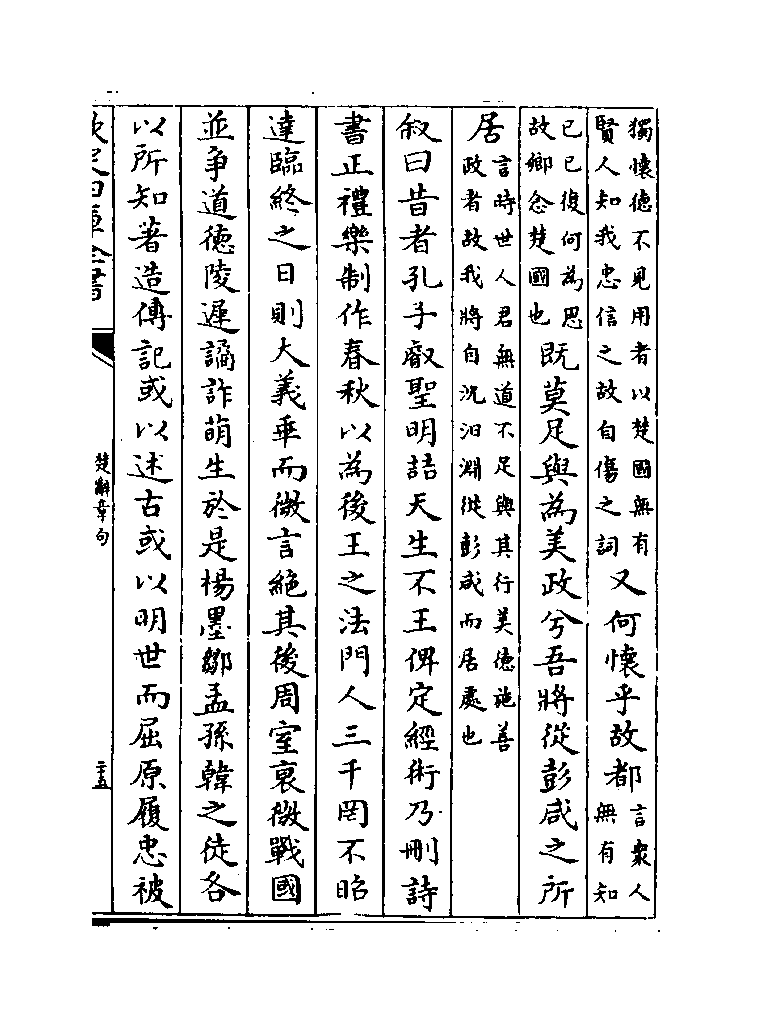 獨懷德不見用者以楚國無有賢人知我忠信之故自傷之詞又何懷乎故都言衆人無有知
已已復何為思故鄉念楚國也既莫足與為美政兮吾將從彭咸之所
居言時世人君無道不足與其行美德施善政者故我將自沈汨淵從彭咸而居處也
叙曰昔者孔子叡聖明喆天生不王俾定經術乃刪詩
書正禮樂制作春秋以為後王之法門人三千罔不昭
達臨終之日則大義乖而微言絶其後周室衰微戰國
並爭道德陵遲譎詐萌生於是楊墨鄒孟孫韓之徒各
以所知著造傳記或以述古或以明世而屈原履忠被
欽定四庫全書
楚辭章句
二十五